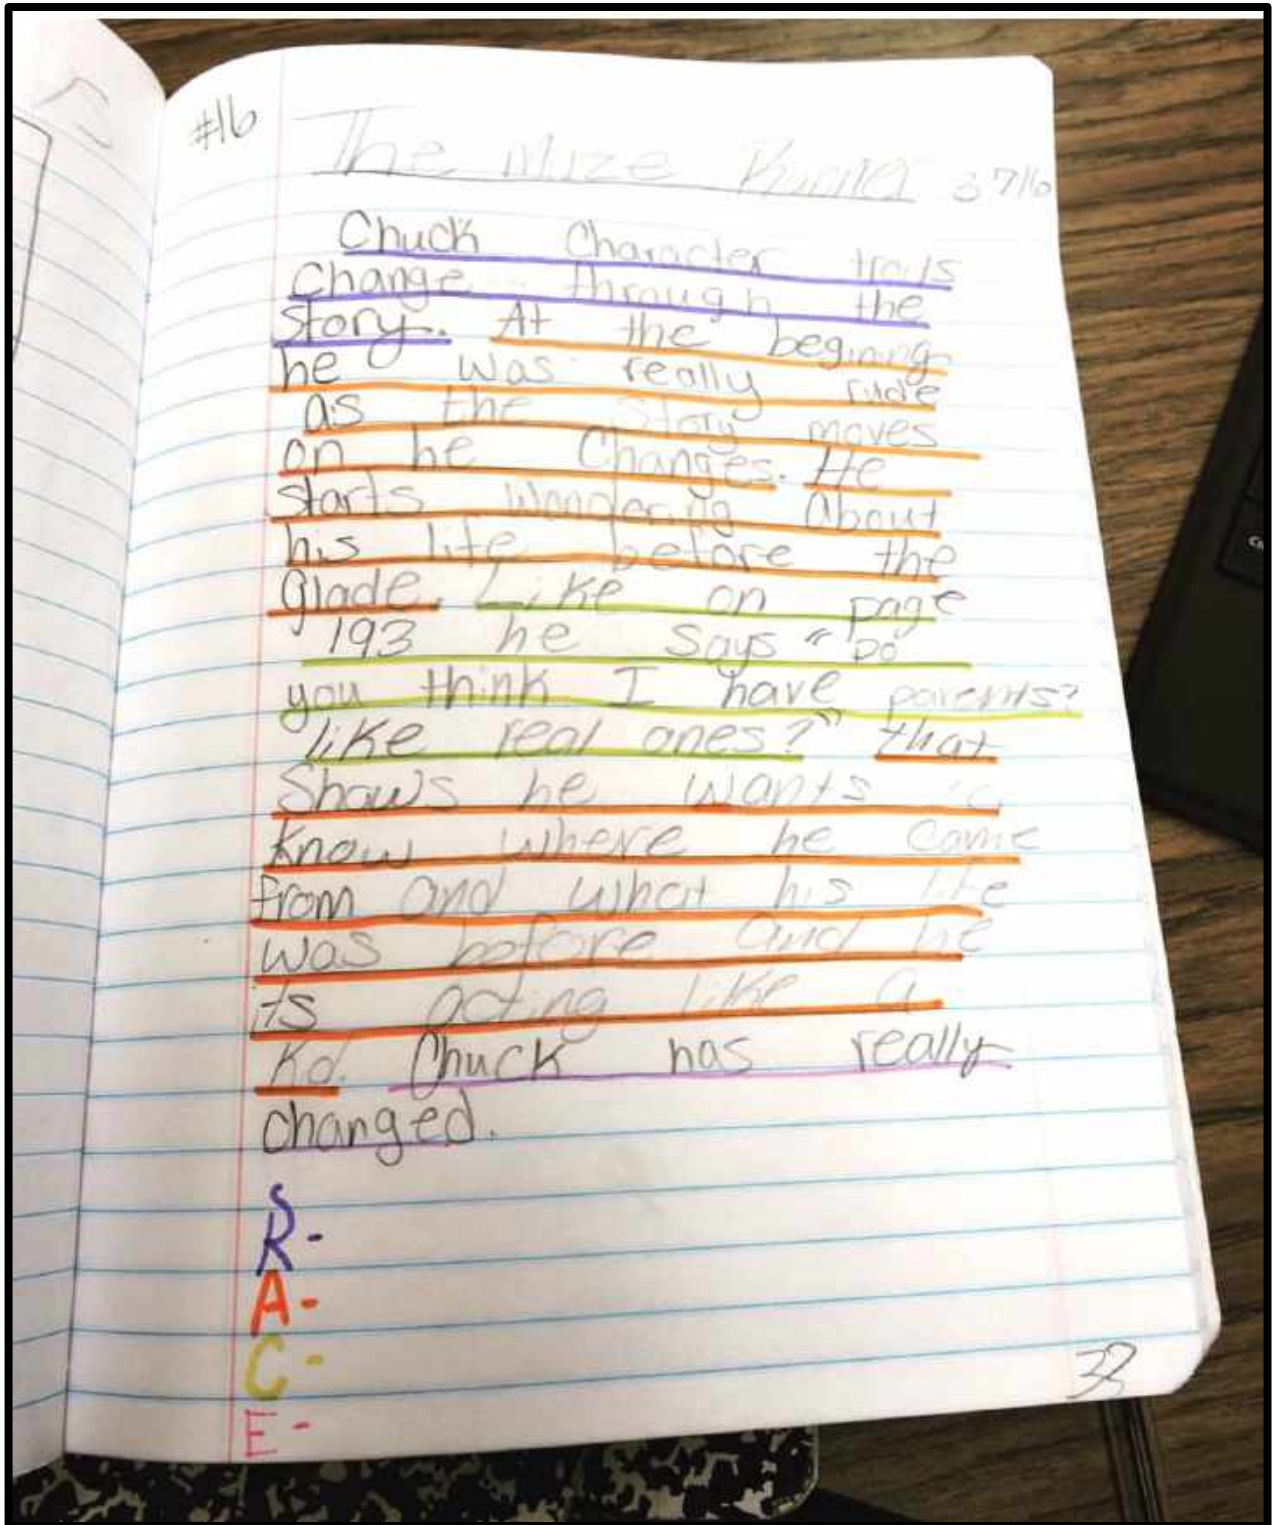 #16
The Maze Runner 3 7/16
Chuck Character traits
Change through the
Story. At the begining
he was really rude
as the Story moves
on he Changes. He
starts Wondering About
his life before the
glade. Like on page
193 he says " Do
you think I have parents?
like real ones?" that
Shows he wants to
know where he came
from and what his life
was before and he
its acting like a
Kd. Chuck has really
changed.
S
R-
A-
C-
E-